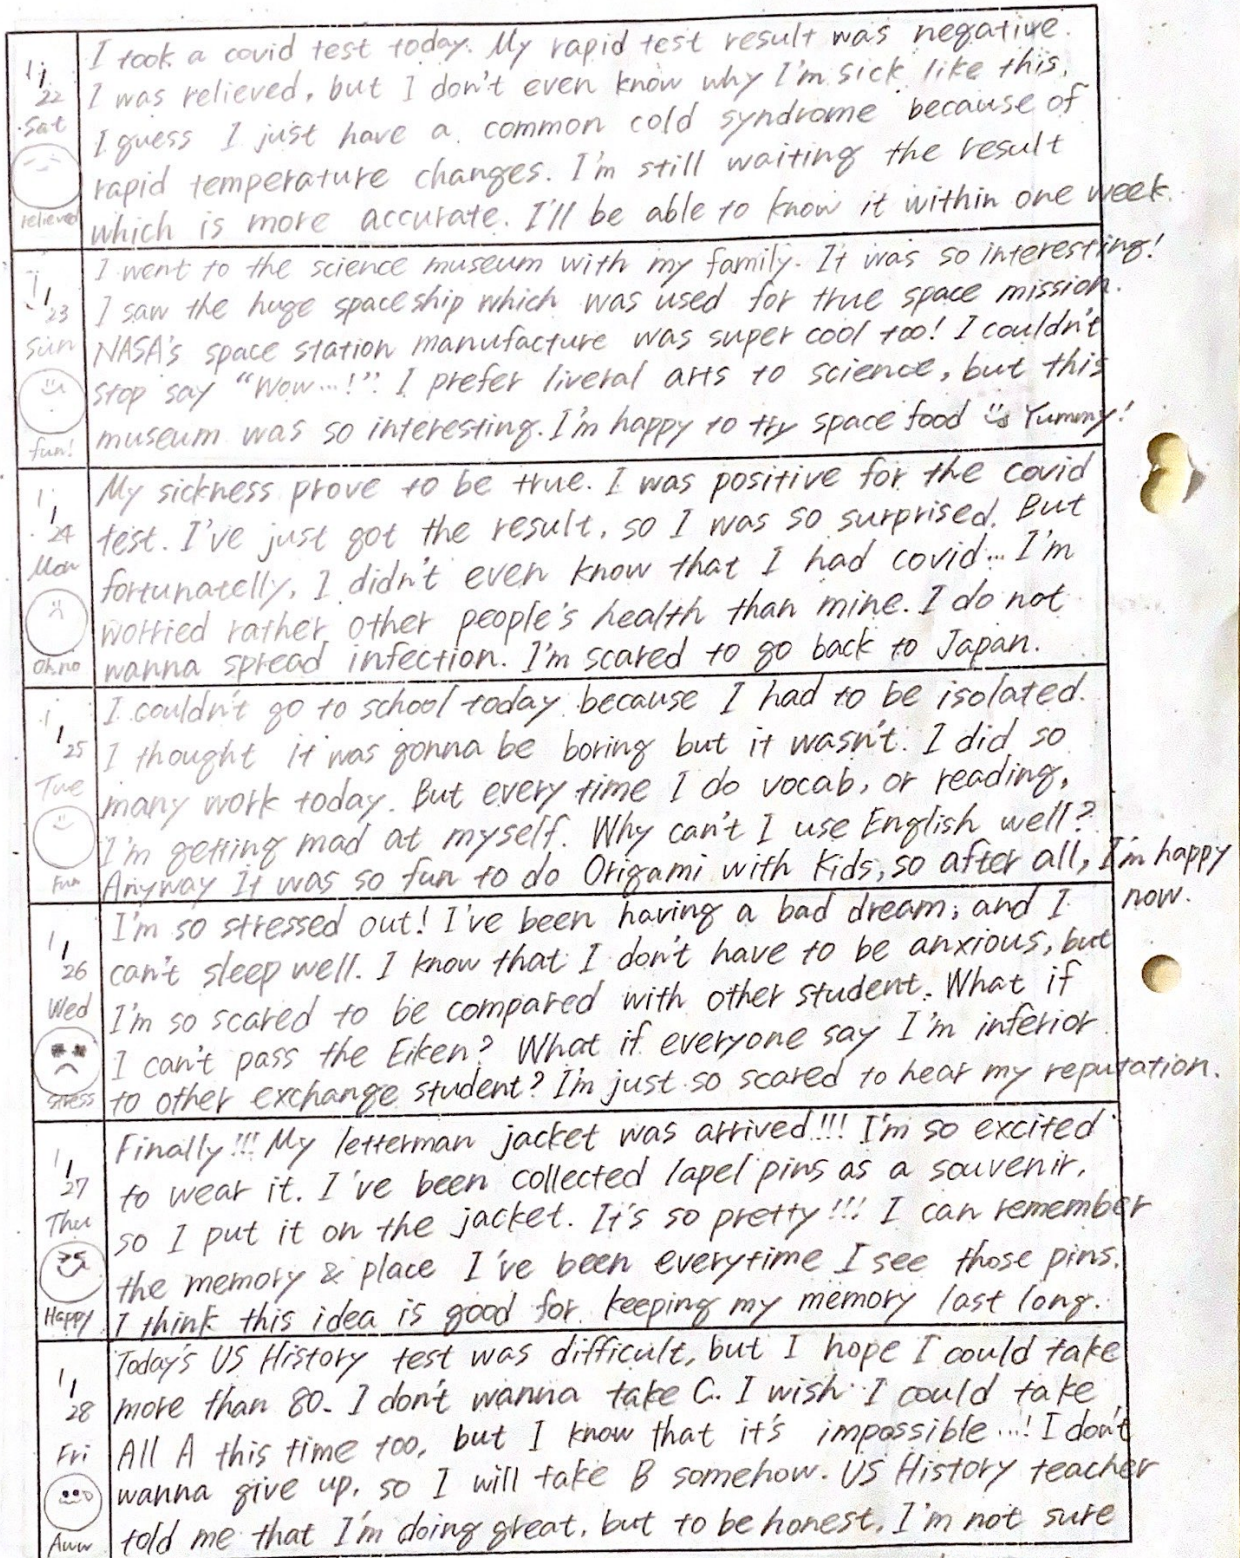 1/22
Sat
relieved
I took a covid test today. My rapid test result was negative.
I was relieved, but I don't even know why I'm sick like this.
I guess I just have a common cold syndrome because of
rapid temperature changes. I'm still waiting the result
which is more accurate. I'll be able to know it within one week.
1/23
Sun
fun!
I went to the science museum with my family. It was so interesting!
I saw the huge spaceship which was used for true space mission.
NASA's space station manufacture was super cool too! I couldn't
stop say "Wow...!" I prefer liveral arts to science, but this
museum was so interesting. I'm happy to try space food Yummy!
1/24
Mon
Oh.no
My sickness prove to be true. I was positive for the covid
test. I've just got the result, so I was so surprised. But
fortunatelly, I didn't even know that I had covid... I'm
worried rather other people's health than mine. I do not
wanna spread infection. I'm scared to go back to Japan.
1/25
Tue
Fun
I couldn't go to school today because I had to be isolated.
I thought it was gonna be boring but it wasn't. I did so
many work today. But every time I do vocab, or reading,
I'm getting mad at myself. Why can't I use English well?
Anyway It was so fun to do Origami with kids, so after all, I'm happy
now.
1/26
Wed
stress
I'm so stressed out! I've been having a bad dream, and I
can't sleep well. I know that I don't have to be anxious, but
I'm so scared to be compared with other student. What if
I can't pass the Eiken? What if everyone say I'm inferior
to other exchange student? I'm just so scared to hear my reputation.
1/27
Thu
Happy
Finally!!! My letterman jacket was arrived!!! I'm so excited
to wear it. I've been collected lapel pins as a souvenir,
so I put it on the jacket. It's so pretty!!! I can remember
the memory & place I've been everytime I see those pins.
I think this idea is good for keeping my memory last long.
1/28
Fri
Aww
Today's US History test was difficult, but I hope I could take
more than 80. I don't wanna take C. I wish I could take
All A this time too, but I know that it's impossible...! I don't
wanna give up, so I will take B somehow. US History teacher
told me that I'm doing great, but to be honest, I'm not sure